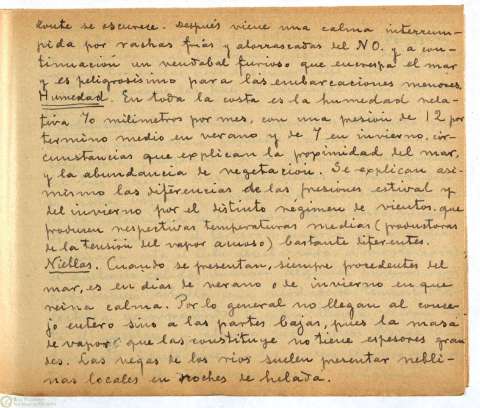 zonte se escurece. Después viene una calma interrum-
pida por rachas frías y aborrascadas del NO. y a con-
tinuación un vendabal furioso que encrespa el mar
y es peligrosísimo para las embarcaciones menores.
Humedad. En toda la costa es la humedad rela-
tiva 70 milímetros por mes, con una presión de 12 por
termino medio en verano y de 7 en invierno, cir-
cunstancias que explican la proximidad del mar,
y la abundancia de vegetación. Se explican asi-
mismo las diferencias de las presiones estival y
del invierno por el distinto régimen de vientos que
producen respectivas temperaturas medias (productoras
de la tensión del vapor acuoso) bastante diferentes.
Nieblas. Cuando se presentan, siempre procedentes del
mar, es en días de verano o de invierno en que
reina calma. Por lo general no llegan al conce-
jo entero sino a las partes bajas, pues la masa
de vapor que las constituye no tiene espesores gran-
des. Las vegas de los ríos suelen presentar nebli-
nas locales en noches de helada.